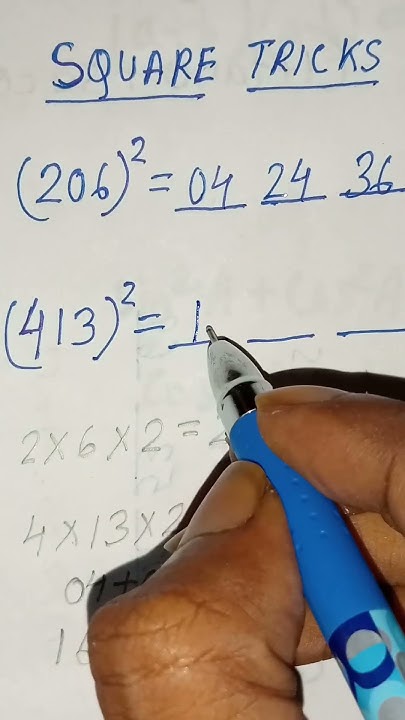 SQUARE TRICKS
(206)² = 04 24 36
(413)² = 1
2×6×2=
4×13×2
04+
16